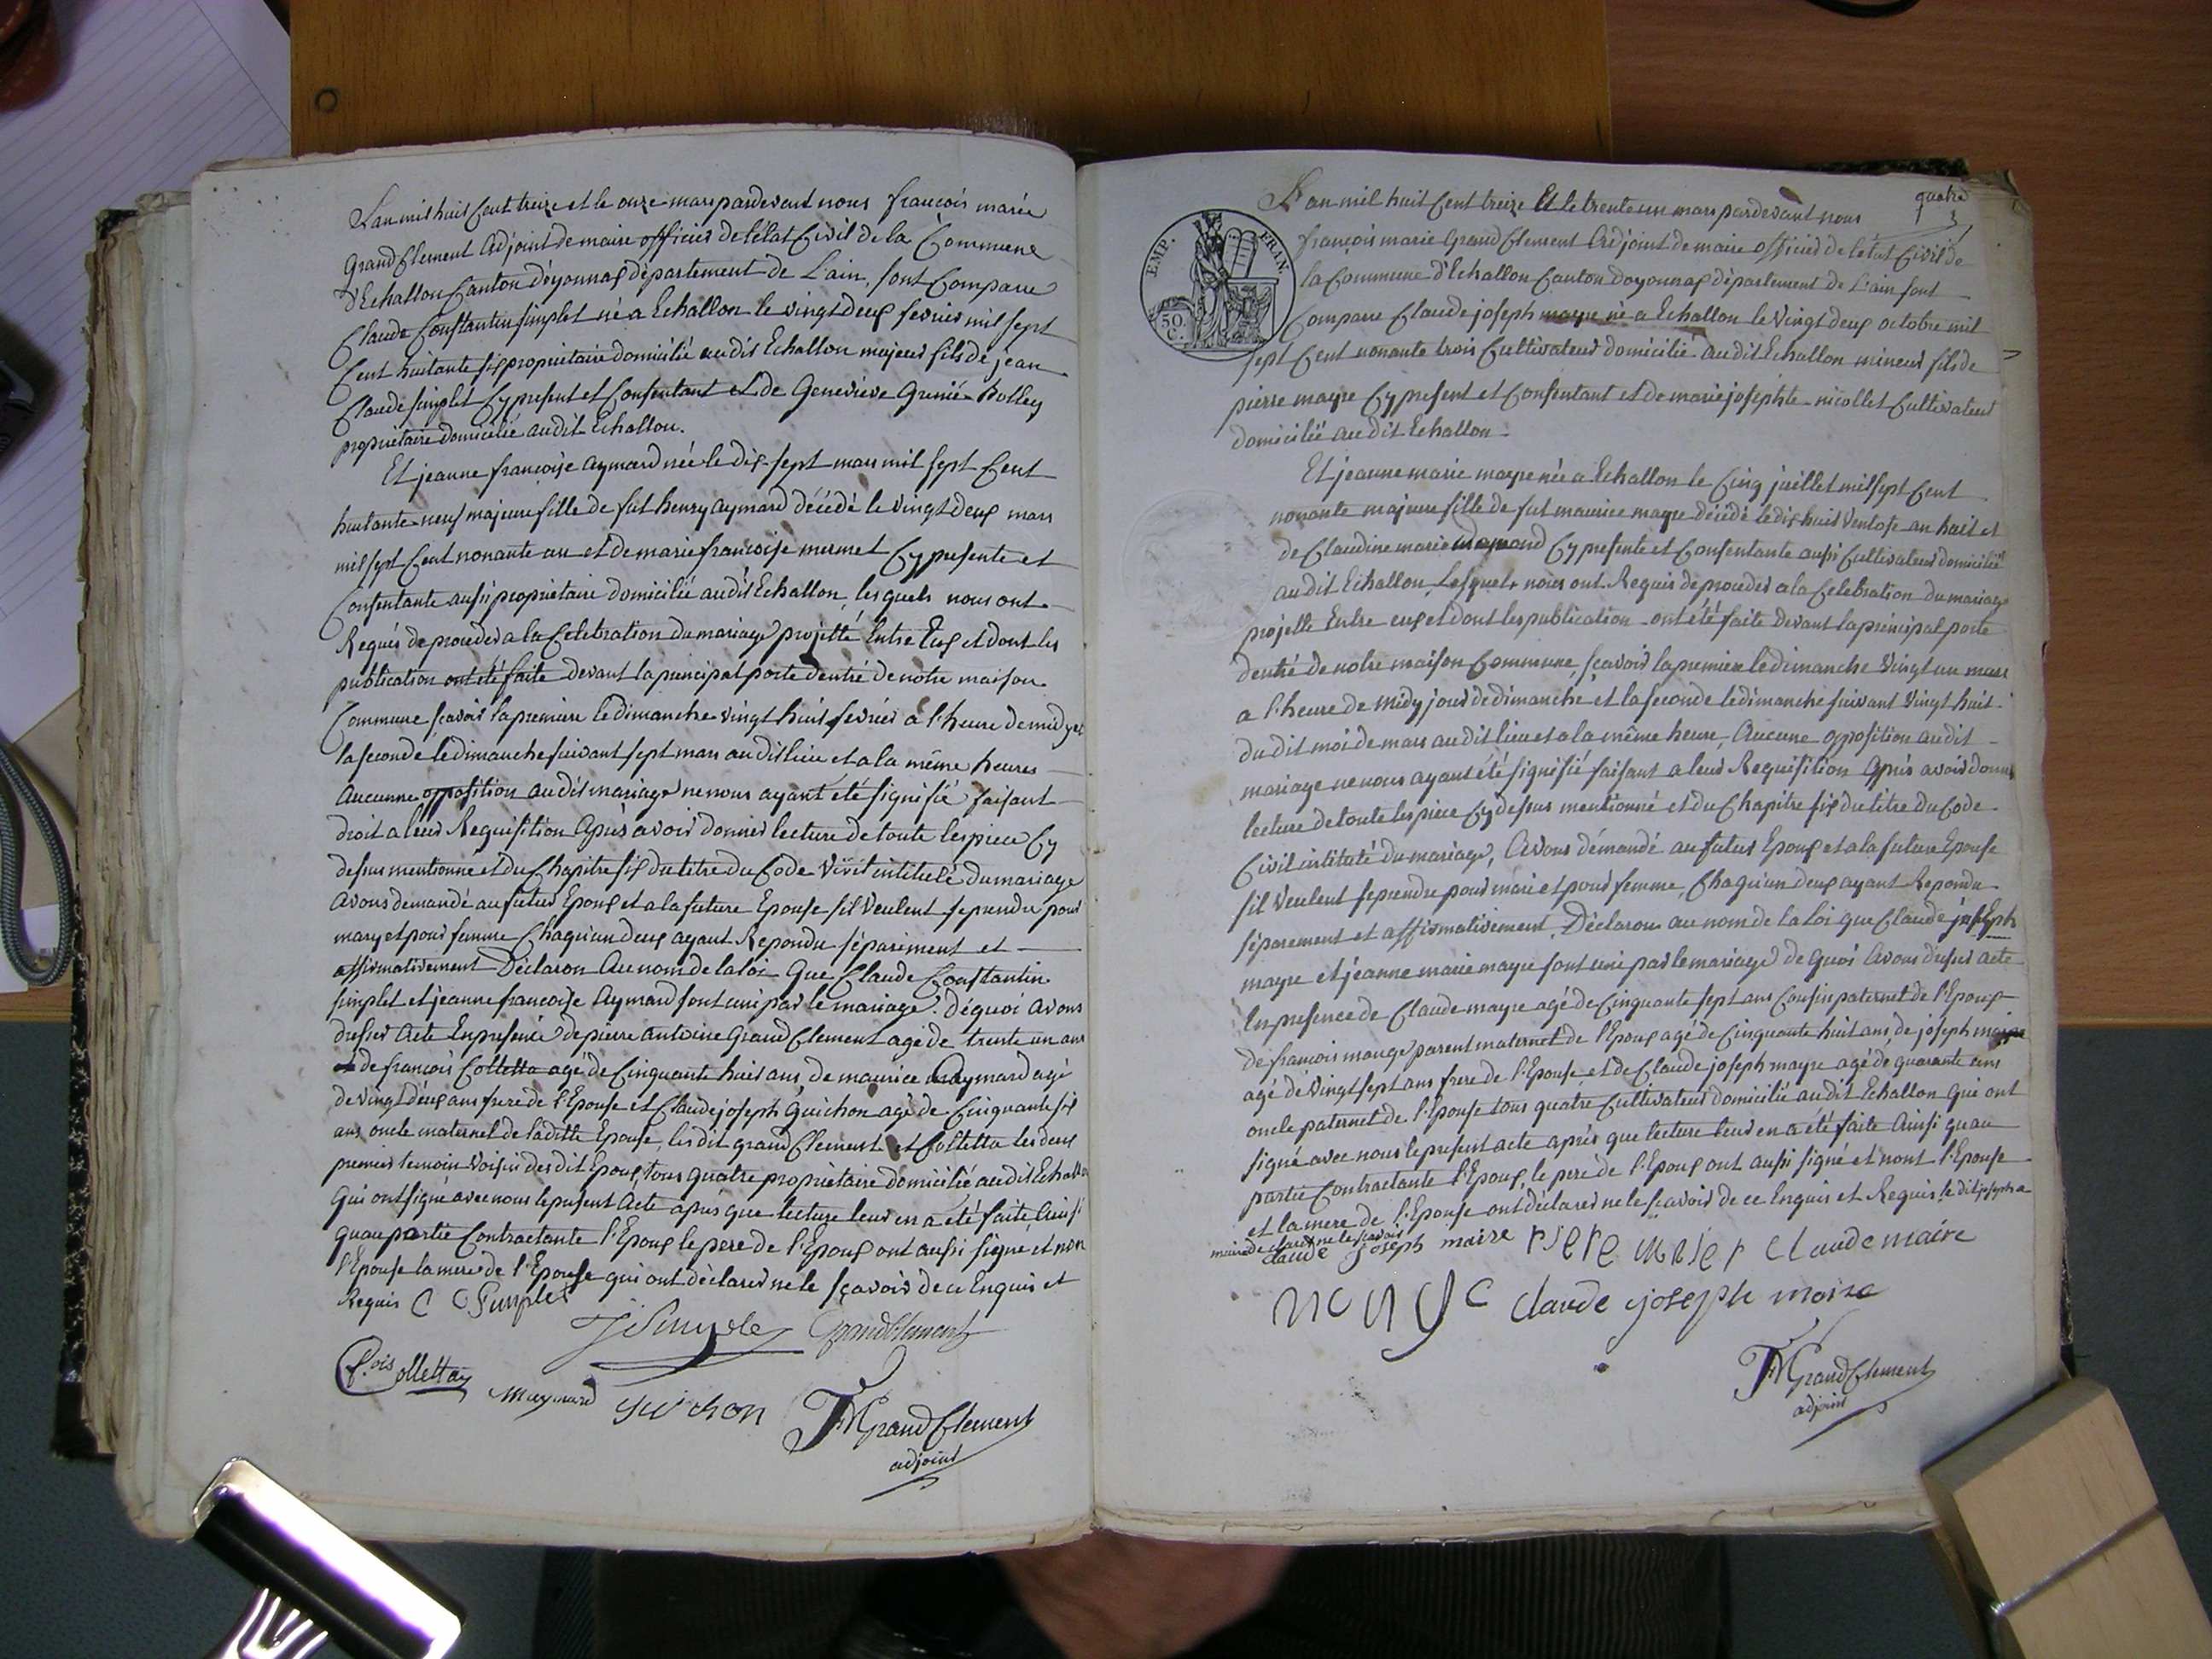 L'an mil huit Cent treize et le onze mars pardevant nous françois marie
Grand Clement Adjoint de maire officier de l'état Civil de la Commune
d'Echallon Canton d'oyonnax département de L'ain, sont Comparu
Claude Constantin simplet né a Echallon le vingt deux fevrier mil sept
Cent huitante six proprietaire domicilié audit Echallon majeur fils de jean
Claude simplet Cy present et Consentant et de Geneviève Grenié Bolley
proprietaire domicilié audit Echallon.
Et jeanne françoise Aymard née le dix-sept mars mil sept Cent
huitante-neuf majeure fille de fut henry aymard décédé le vingt deux mars
mil sept Cent nonante un et de marie françoise mermet Cy presente et
Consentante aussi proprietaire domicilié audit Echallon, les quels nous ont
Requis de proceder a la Celebration du mariage projetté Entre Eux et dont les
publication ont été faite devant la principal porte d'entré de notre maison
Commune sçavoir la premiere le dimanche vingt huit fevrier a l'heure de midy et
la seconde le dimanche suivant sept mars au dit lieu et a la même heures
Aucunne opposition audit mariage ne nous ayant été signifié faisant
droit a leur Requisition Après avoir donner lecture de toute les piece Cy
dessus mentionné et du Chapitre six du titre du Code Civil intitulé du mariage
Avons demandé au futur Epoux et a la future Epouse s'il veulent se prendre pour
mary et pour femme Chaqu'un deux ayant Repondu séparément et
affirmativement Déclaron Au nom de la loi Que Claude Constantin
simplet et jeanne françoise Aymard sont uni par le mariage. De quoi avons
dresser Acte En presence de pierre Antoine Grand Clement agé de trente un ans
de françois Colletta agé de Cinquante huit ans, de maurice Aymard agé
de vingt deux ans frere de l'Epouse et Claude joseph Guichon agé de Cinquante six
ans oncle maternel de la ditte Epouse, les dit grand Clement et Colletta les deux
premier temoin Voisin des dit Epoux, tous quatre proprietaire domicilié audit Echallon
Qui ont signé avec nous le present Acte après que lecture leur en a été faite Ainsi
quau partie Contractante l'Epoux le pere de l'Epoux ont aussi signé et non
l'Epouse la mere de l'Epouse qui ont déclarer ne le sçavoir de ce Enquis et
Requis C C Simplet
J C Simple GrandClement
f.ois Collettaz
Maymard guichon FMGrandClement
adjoint
quatre
L'an mil huit Cent treize Et le trente un mars pardevant nous
EMP. FRAN.
50. C.
françois marie Grand Clement Adjoint de maire officier de l'état Civil de
la Commune d'Echallon Canton doyonnax département de L'ain sont
Comparu Claude joseph mayre né a Echallon le vingt deux octobre mil
sept Cent nonante trois Cultivateur domicilié audit Echallon mineur fils de
pierre mayre Cy present et Consentant et de marie josephte nicollet Cultivateur
domicilié audit Echallon
Et jeanne marie mayre née a Echallon le Cinq juillet mil sept Cent
nonante majeure fille de fut maurice mayre décédé le dix huit Ventose an huit et
de Claudine marie Cy presente et Consentante aussi Cultivateur domicilié
audit Echallon, Lesquels nous ont Requis de proceder a la Celebration du mariage
projetté Entre eux et dont les publication ont été faite devant la principal porte
d'entré de notre maison Commune, sçavoir la premiere le dimanche vingt un mars
a l'heure de midy jour de dimanche et la seconde le dimanche suivant vingt huit
du dit moi de mars au dit lieu et a la même heure, Aucune opposition audit
mariage ne nous ayant été signifié faisant a leur Requisition Après avoir donné
lecture de toute les piece Cy dessus mentionné et du Chapitre six du titre du Code
Civil intitulé du mariage, Avons démandé au futur Epoux et a la future Epouse
s'il veulent se prendre pour mari et pour femme, Chaqu'un deux ayant Repondu
séparement et affirmativement, Déclaron au nom de la Loi que Claude joseph
mayre et jeanne marie mayre sont uni par le mariage de quoi Avons dresser acte
En presence de Claude mayre agé de Cinquante sept ans Cousin paternel de l'Epoux
de francois monge parent maternel de l'Epoux agé de Cinquante huit ans, de joseph mayre
agé de vingt sept ans frere de l'Epouse et de Claude joseph mayre agé de quarante ans
oncle paternel de l'Epouse tous quatre Cultivateur domicilié audit Echallon Qui ont
signé avec nous le present acte après que lecture leur en a été faite Ainsi quau
partie Contractante l'Epoux, le pere de l'Epoux ont aussi signé et nont l'Epouse
et la mere de l'Epouse ont déclarer ne le sçavoir de ce Enquis et Requis, le dit joseph a
maire declaré ne le sçavoir
claude joseph maire Claude maire
monge claude joseph moire
FMGrandClement
adjoint